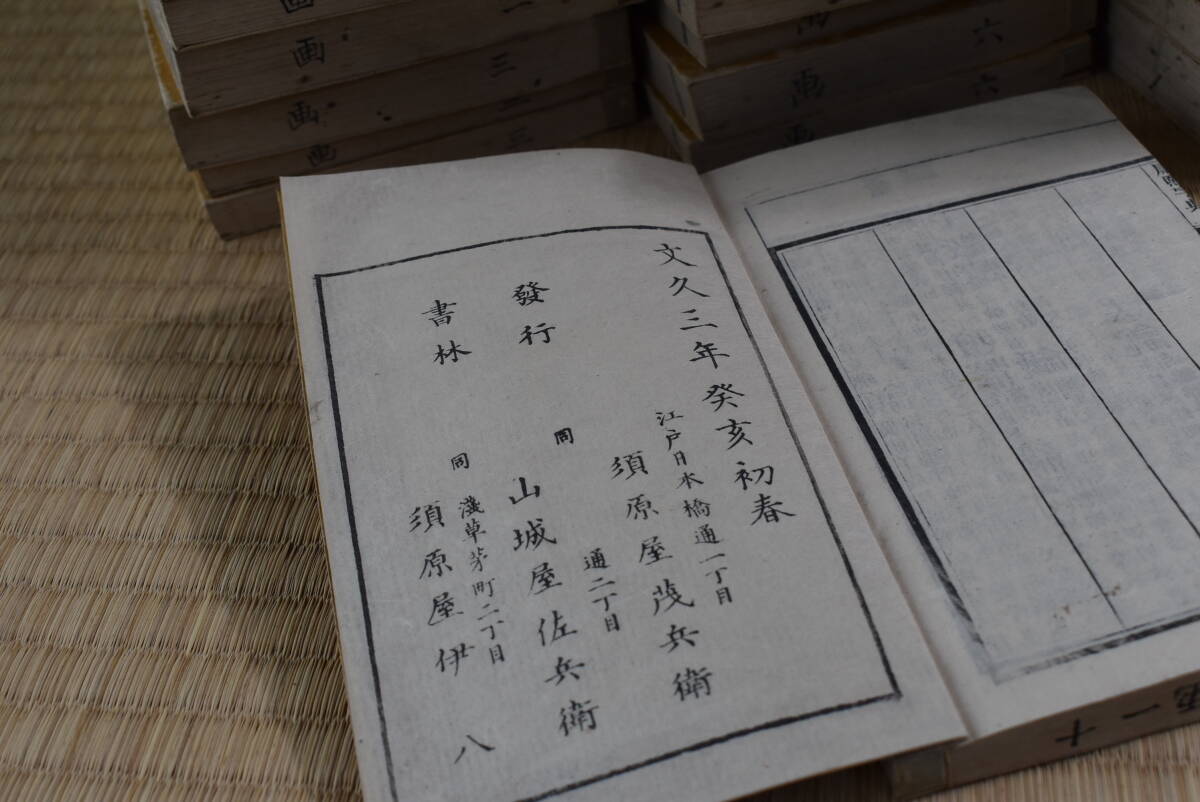 文久三年癸亥初春
江戸日本橋通一丁目
須原屋茂兵衛
同
通二丁目
山城屋佐兵衛
同
淺草茅町二丁目
須原屋伊八
發行
書林
画
画
三
画
画
三
六
画
六
画
十一画